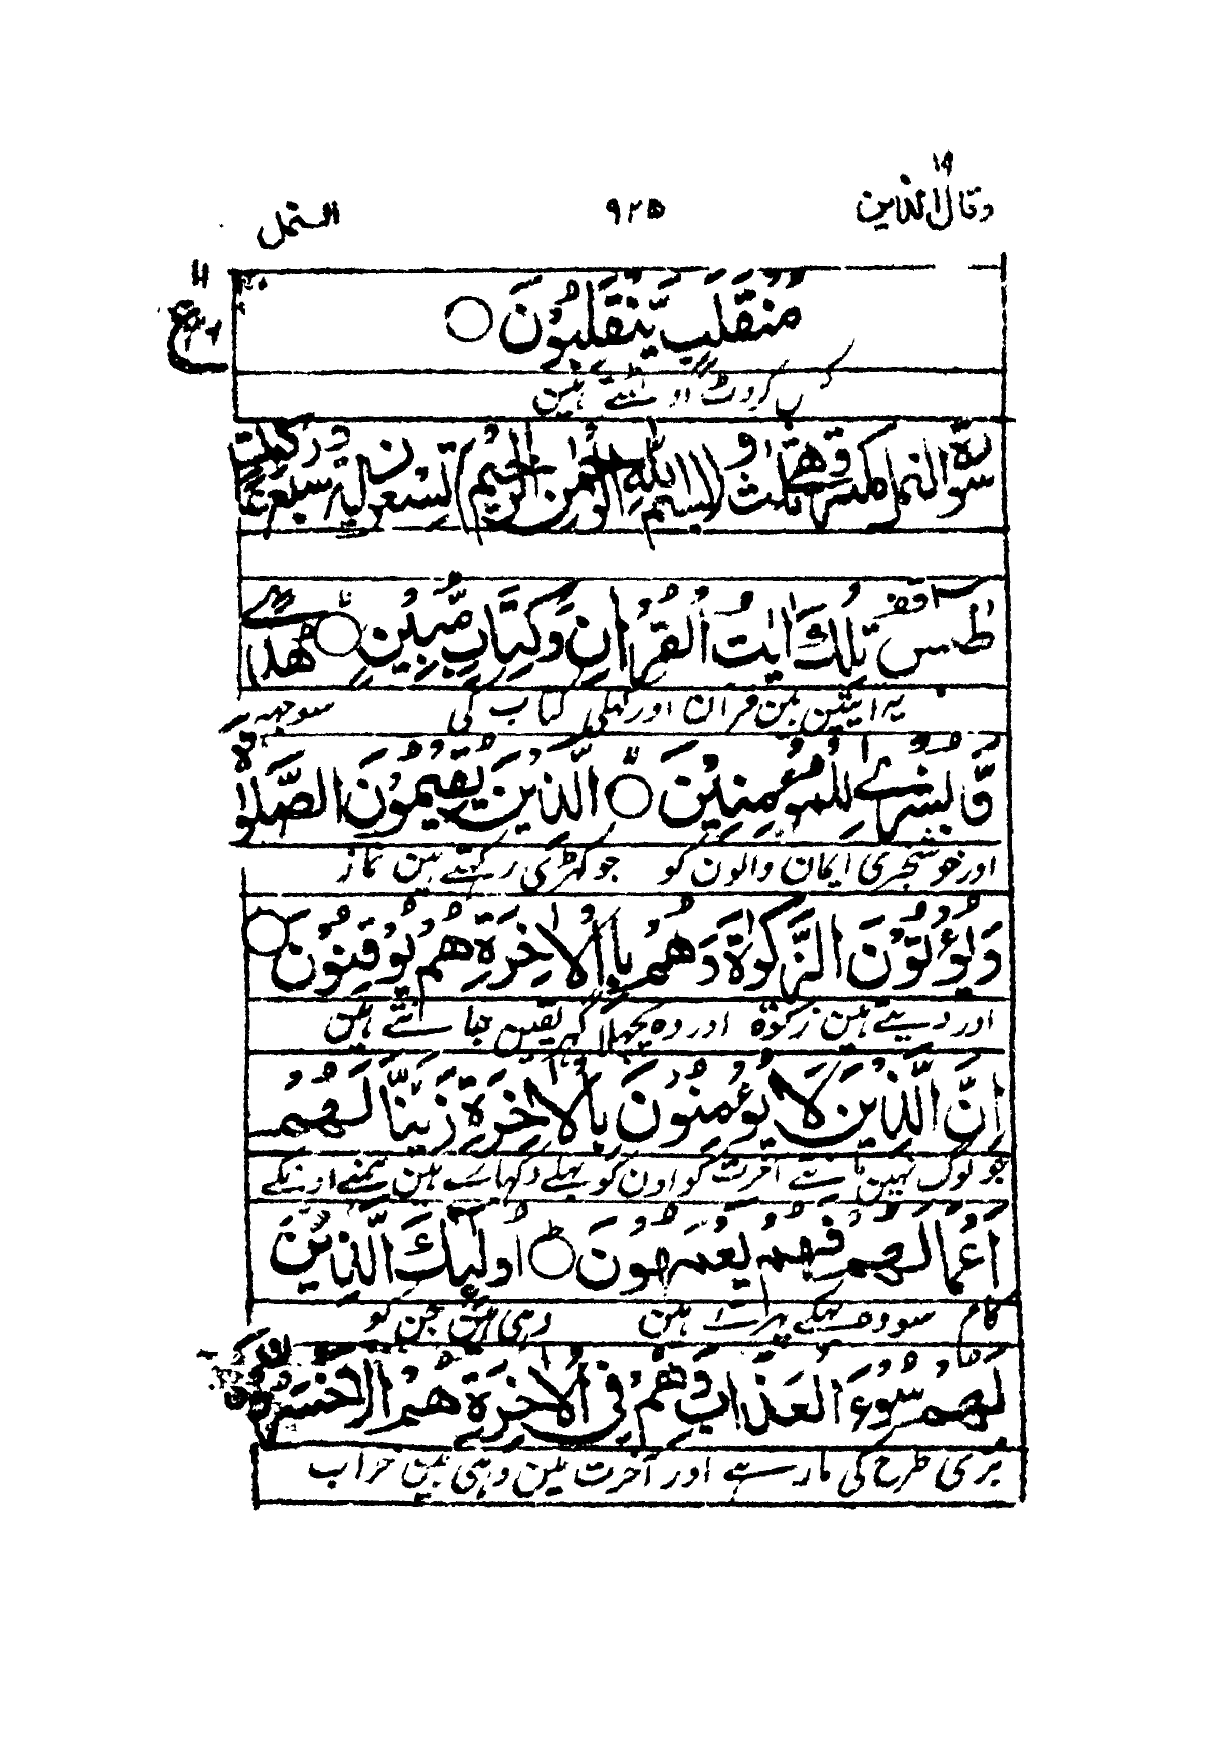 ١٩
وقال الذین ٩٢٥ النمل
مُنْقَلَبٍ يَّنْقَلِبُوْنَ
کس کروٹ اولٹتے ہین
سورة النمل مكية وهي ثلث و (بسم الله الرحمن الرحيم) تسعون اية سبع ركوعات
طٰسٓ تِلْكَ اٰيٰتُ الْقُرْاٰنِ وَكِتَابٍ مُّبِيْنٍ هُدًى
یہ آیتین ہین قرآن اور کہلی کتاب کی سوجہہ
وَّبُشْرٰى لِلْمُؤْمِنِيْنَ الَّذِيْنَ يُقِيْمُوْنَ الصَّلٰوةَ
اور خوشخبری ایمان والون کو جو کہڑی رکہتے ہین نماز
وَيُؤْتُوْنَ الزَّكٰوةَ وَهُمْ بِالْاٰخِرَةِ هُمْ يُوْقِنُوْنَ
اور دیتے ہین زکوٰة اور وہ پچھلا گہر یقین جانتے ہین
اِنَّ الَّذِيْنَ لَا يُؤْمِنُوْنَ بِالْاٰخِرَةِ زَيَّنَّا لَهُمْ
جو لوگ نہین مانتے آخرت کو اون کو بہلے دکہائے ہین ہمنے اونکے
اَعْمَالَهُمْ فَهُمْ يَعْمَهُوْنَ اُولٰٓئِكَ الَّذِيْنَ
کام سو وہ بہکے پہرتے ہین وہی ہین جن کو
لَهُمْ سُوْٓءُ الْعَذَابِ وَهُمْ فِي الْاٰخِرَةِ هُمُ الْاَخْسَرُوْنَ
بُری طرح کی مار ہے اور آخرت مین وہی ہین خراب